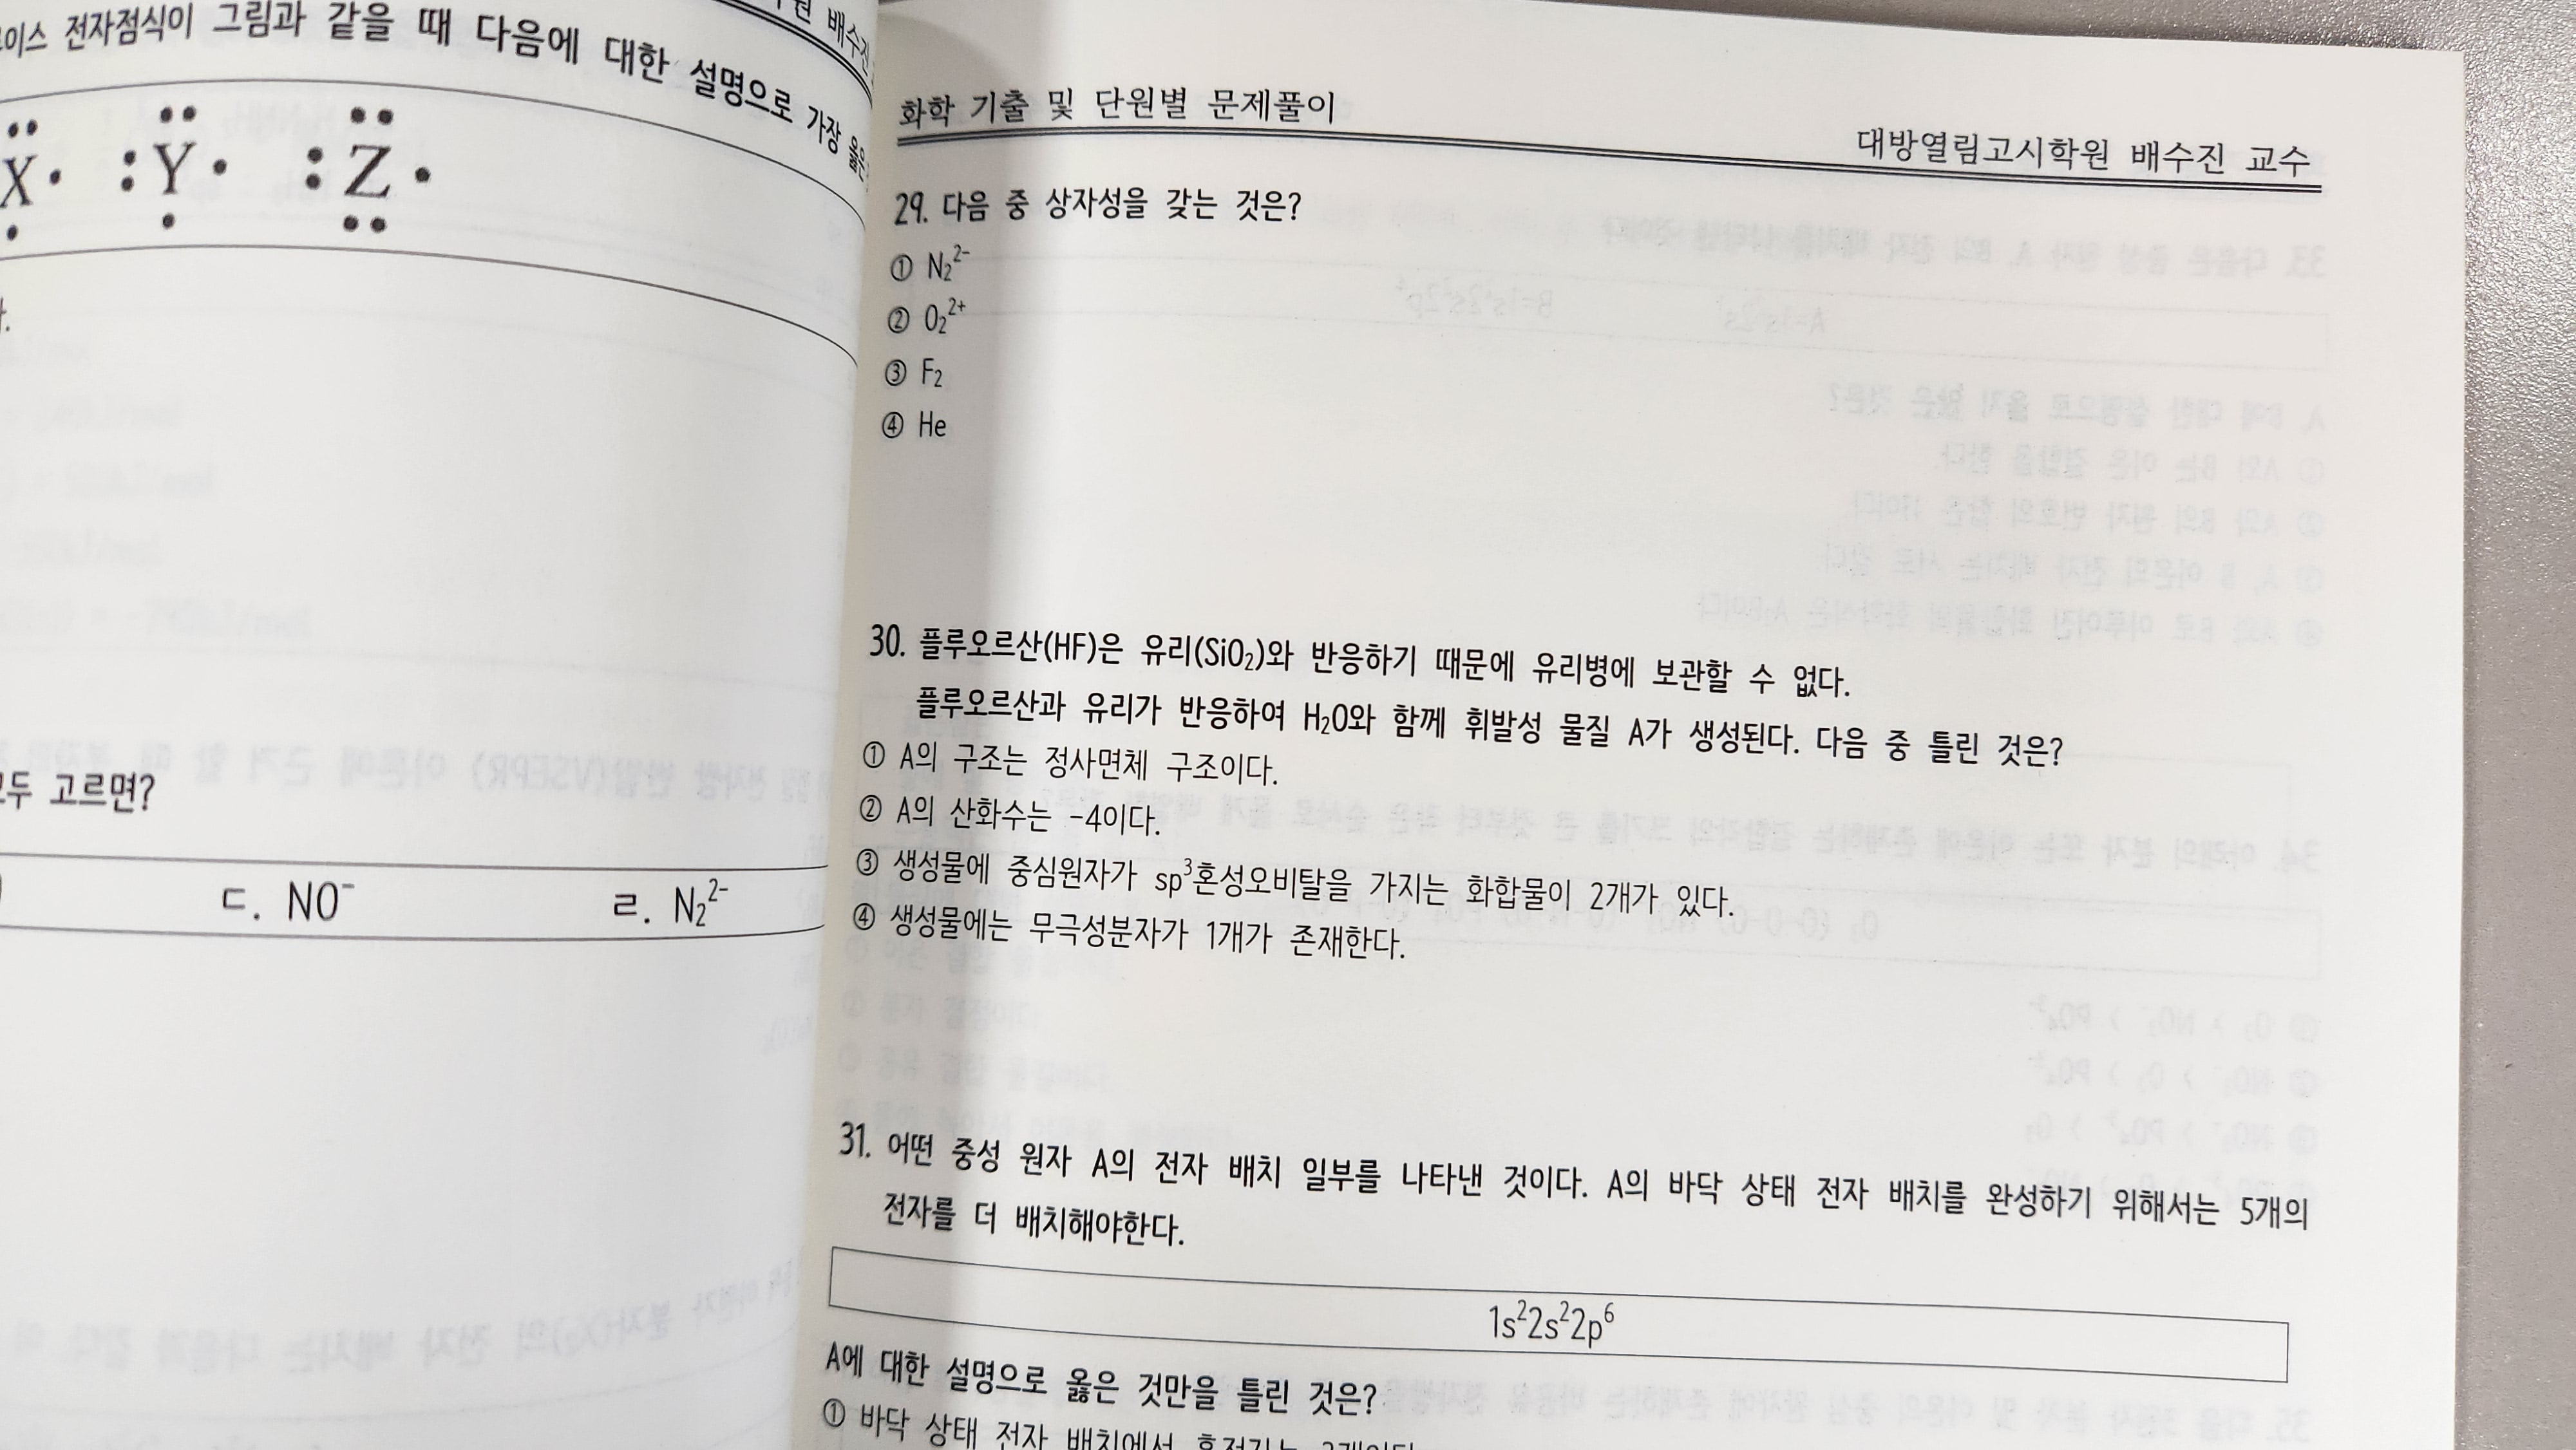 전자점식이 그림과 같을 때 다음에 대한 설명으로 가장 옳은
X Y Z
고르면?
ㄷ. NO⁻ ㄹ. N₂²⁻
화학 기출 및 단원별 문제풀이
대방열림고시학원 배수진 교수
29. 다음 중 상자성을 갖는 것은?
① N₂²⁻
② O₂²⁺
③ F₂
④ He
30. 플루오르산(HF)은 유리(SiO₂)와 반응하기 때문에 유리병에 보관할 수 없다.
플루오르산과 유리가 반응하여 H₂O와 함께 휘발성 물질 A가 생성된다. 다음 중 틀린 것은?
① A의 구조는 정사면체 구조이다.
② A의 산화수는 -4이다.
③ 생성물에 중심원자가 sp³혼성오비탈을 가지는 화합물이 2개가 있다.
④ 생성물에는 무극성분자가 1개가 존재한다.
31. 어떤 중성 원자 A의 전자 배치 일부를 나타낸 것이다. A의 바닥 상태 전자 배치를 완성하기 위해서는 5개의
전자를 더 배치해야한다.
1s²2s²2p⁶
A에 대한 설명으로 옳은 것만을 틀린 것은?
① 바닥 상태 전자 배치에서